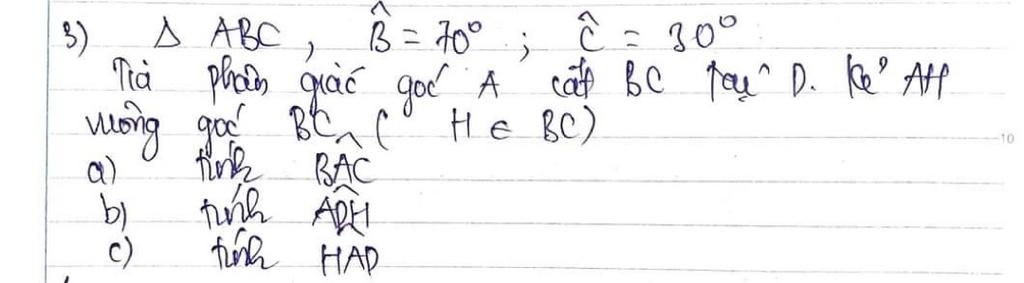 3) Δ ABC, B̂ = 70° ; Ĉ = 30°
Tia phân giác góc A cắt BC tại D. Kẻ AH
vuông góc BC ( H ∈ BC)
10
a) tính B̂AC
b) tính ÂDH
c) tính ĤAD